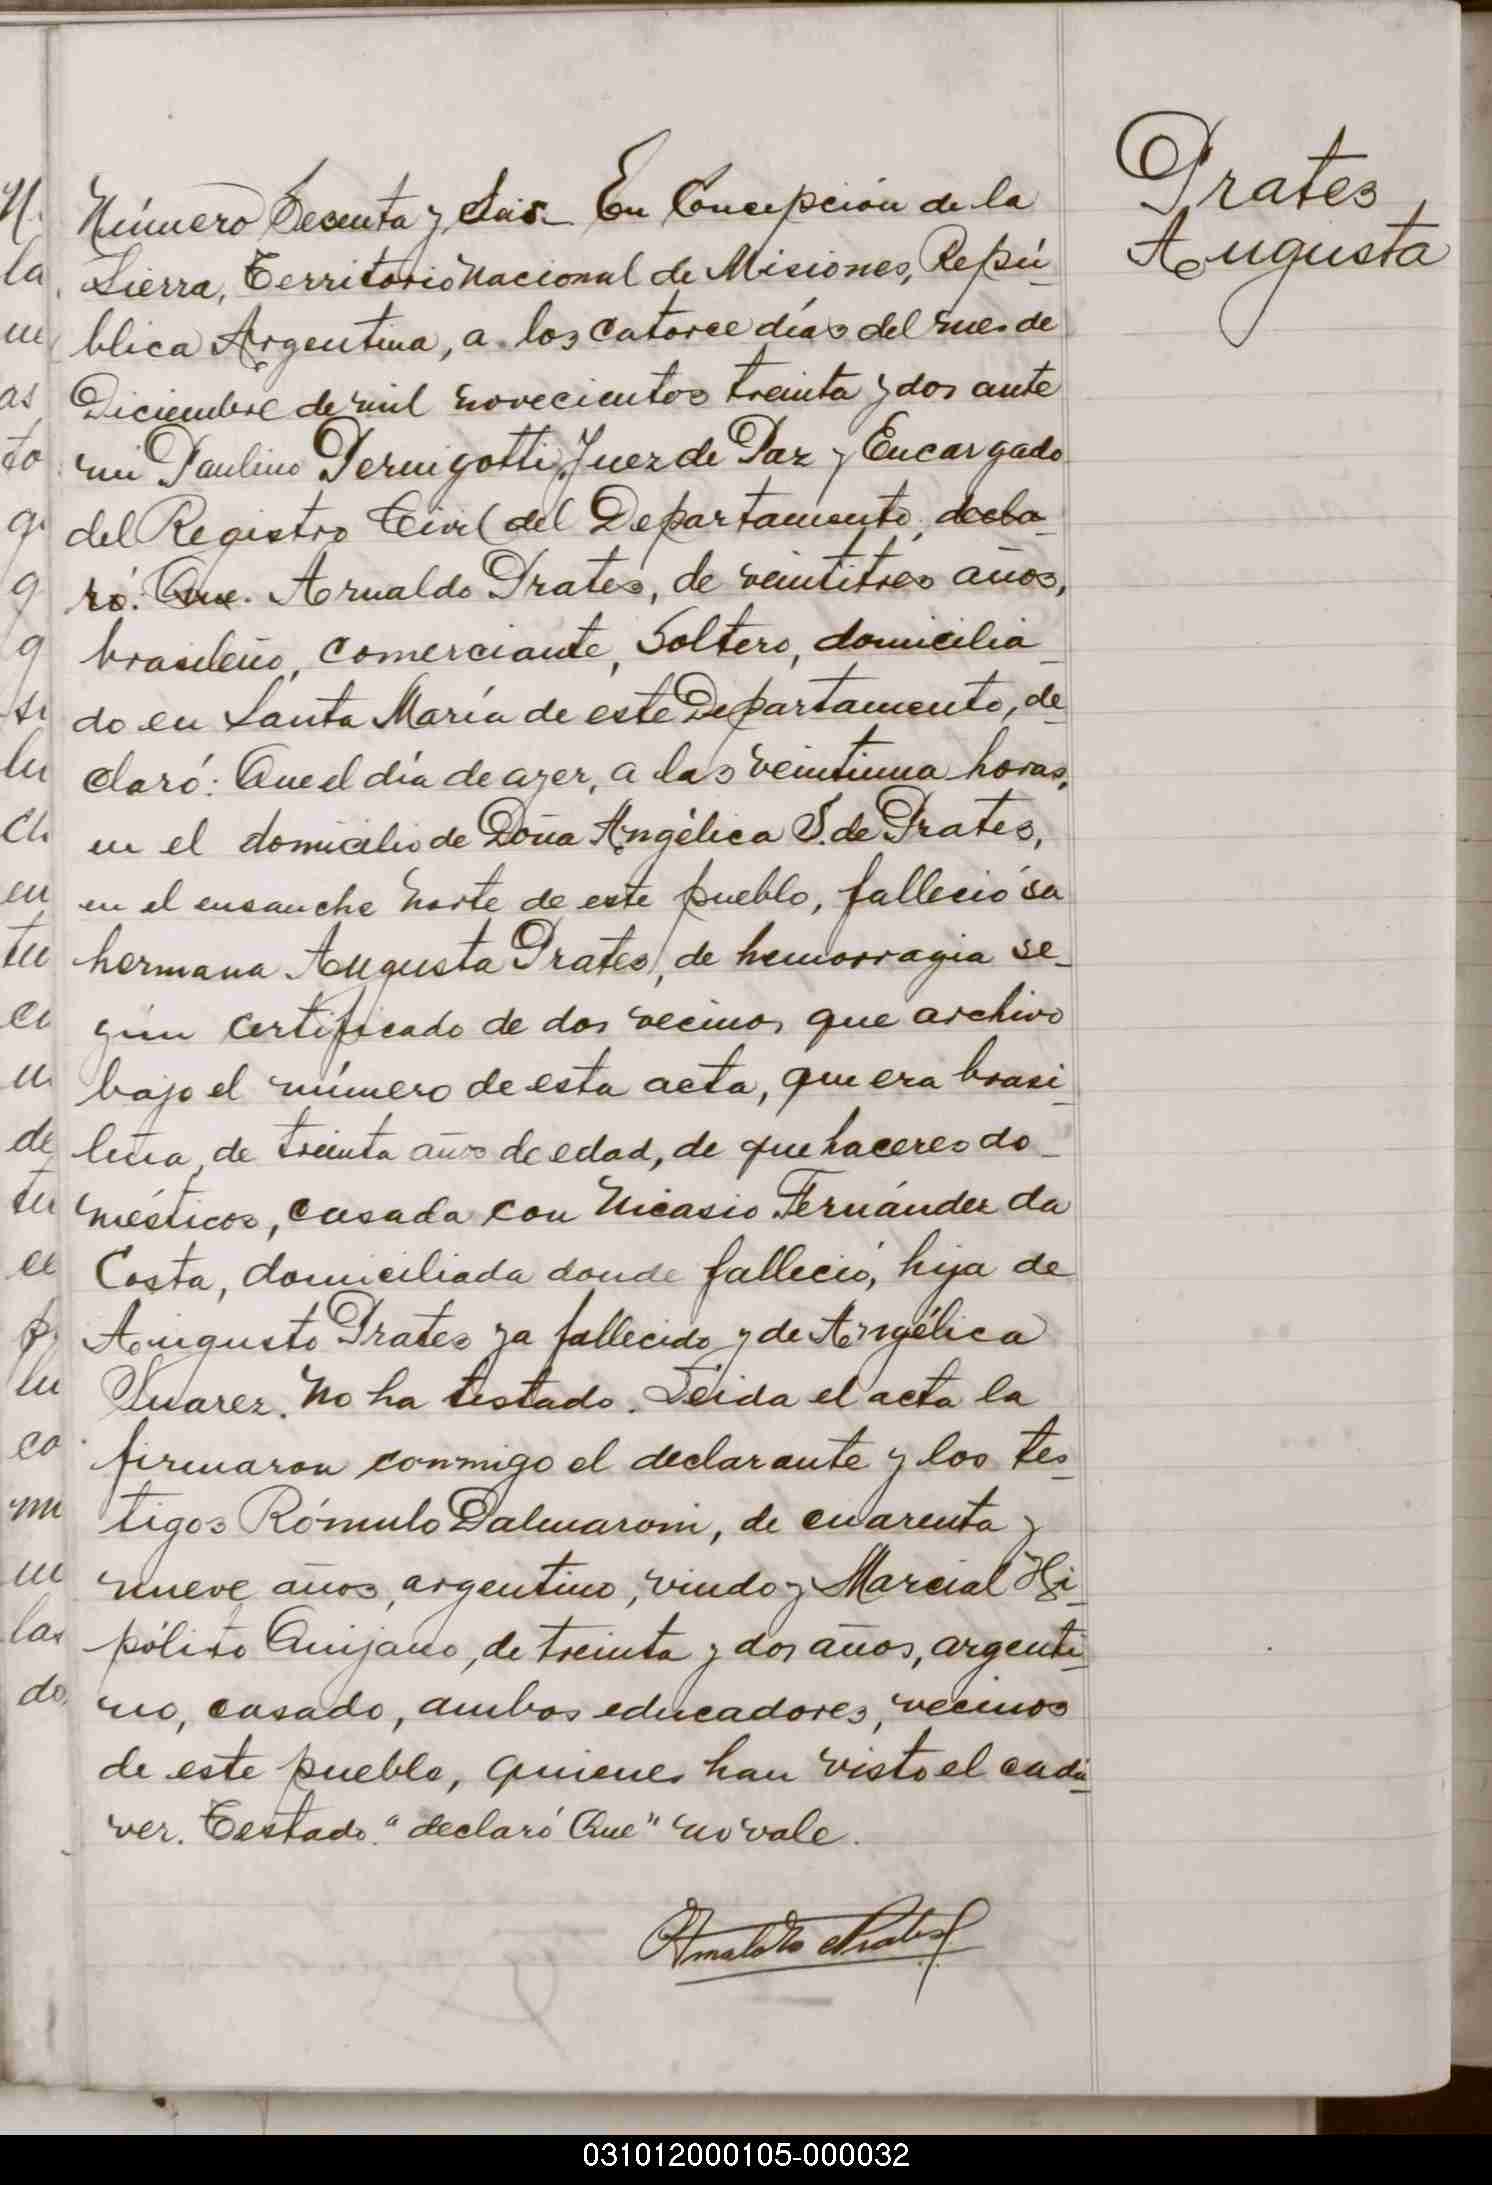 Prates
Augusta
Número Sesenta y Seis. En Concepción de la
Sierra, Territorio Nacional de Misiones, Repú-
blica Argentina, a los catorce días del mes de
Diciembre de mil novecientos treinta y dos ante
mi Paulino Pernigotti, Juez de Paz y Encargado
del Registro Civil del Departamento, decla-
ró: Que. Arnaldo Prates, de veintitres años,
brasileño, comerciante, Soltero, domicilia-
do en Santa María de este Departamento, de-
claró: Que el día de ayer, a las veintiuna horas,
en el domicilio de Doña Angélica S. de Prates,
en el ensanche Norte de este pueblo, falleció su
hermana Augusta Prates, de hemorragia se-
gún certificado de dos vecinos que archivo
bajo el número de esta acta, que era brasi-
leña, de treinta años de edad, de quehaceres do-
mésticos, casada con Nicasio Fernández da
Costa, domiciliada donde falleció, hija de
Augusto Prates ya fallecido y de Angélica
Suarez. No ha testado. Leida el acta la
firmaron conmigo el declarante y los tes-
tigos Rómulo Dalmaroni, de cuarenta y
nueve años, argentino, viudo y Marcial Hi-
pólito Quijano, de treinta y dos años, argenti-
no, casado, ambos educadores, vecinos
de este pueblo, quienes han visto el cadá-
ver. Testado "declaró Que" no vale.
Arnaldo Prates
031012000105-000032